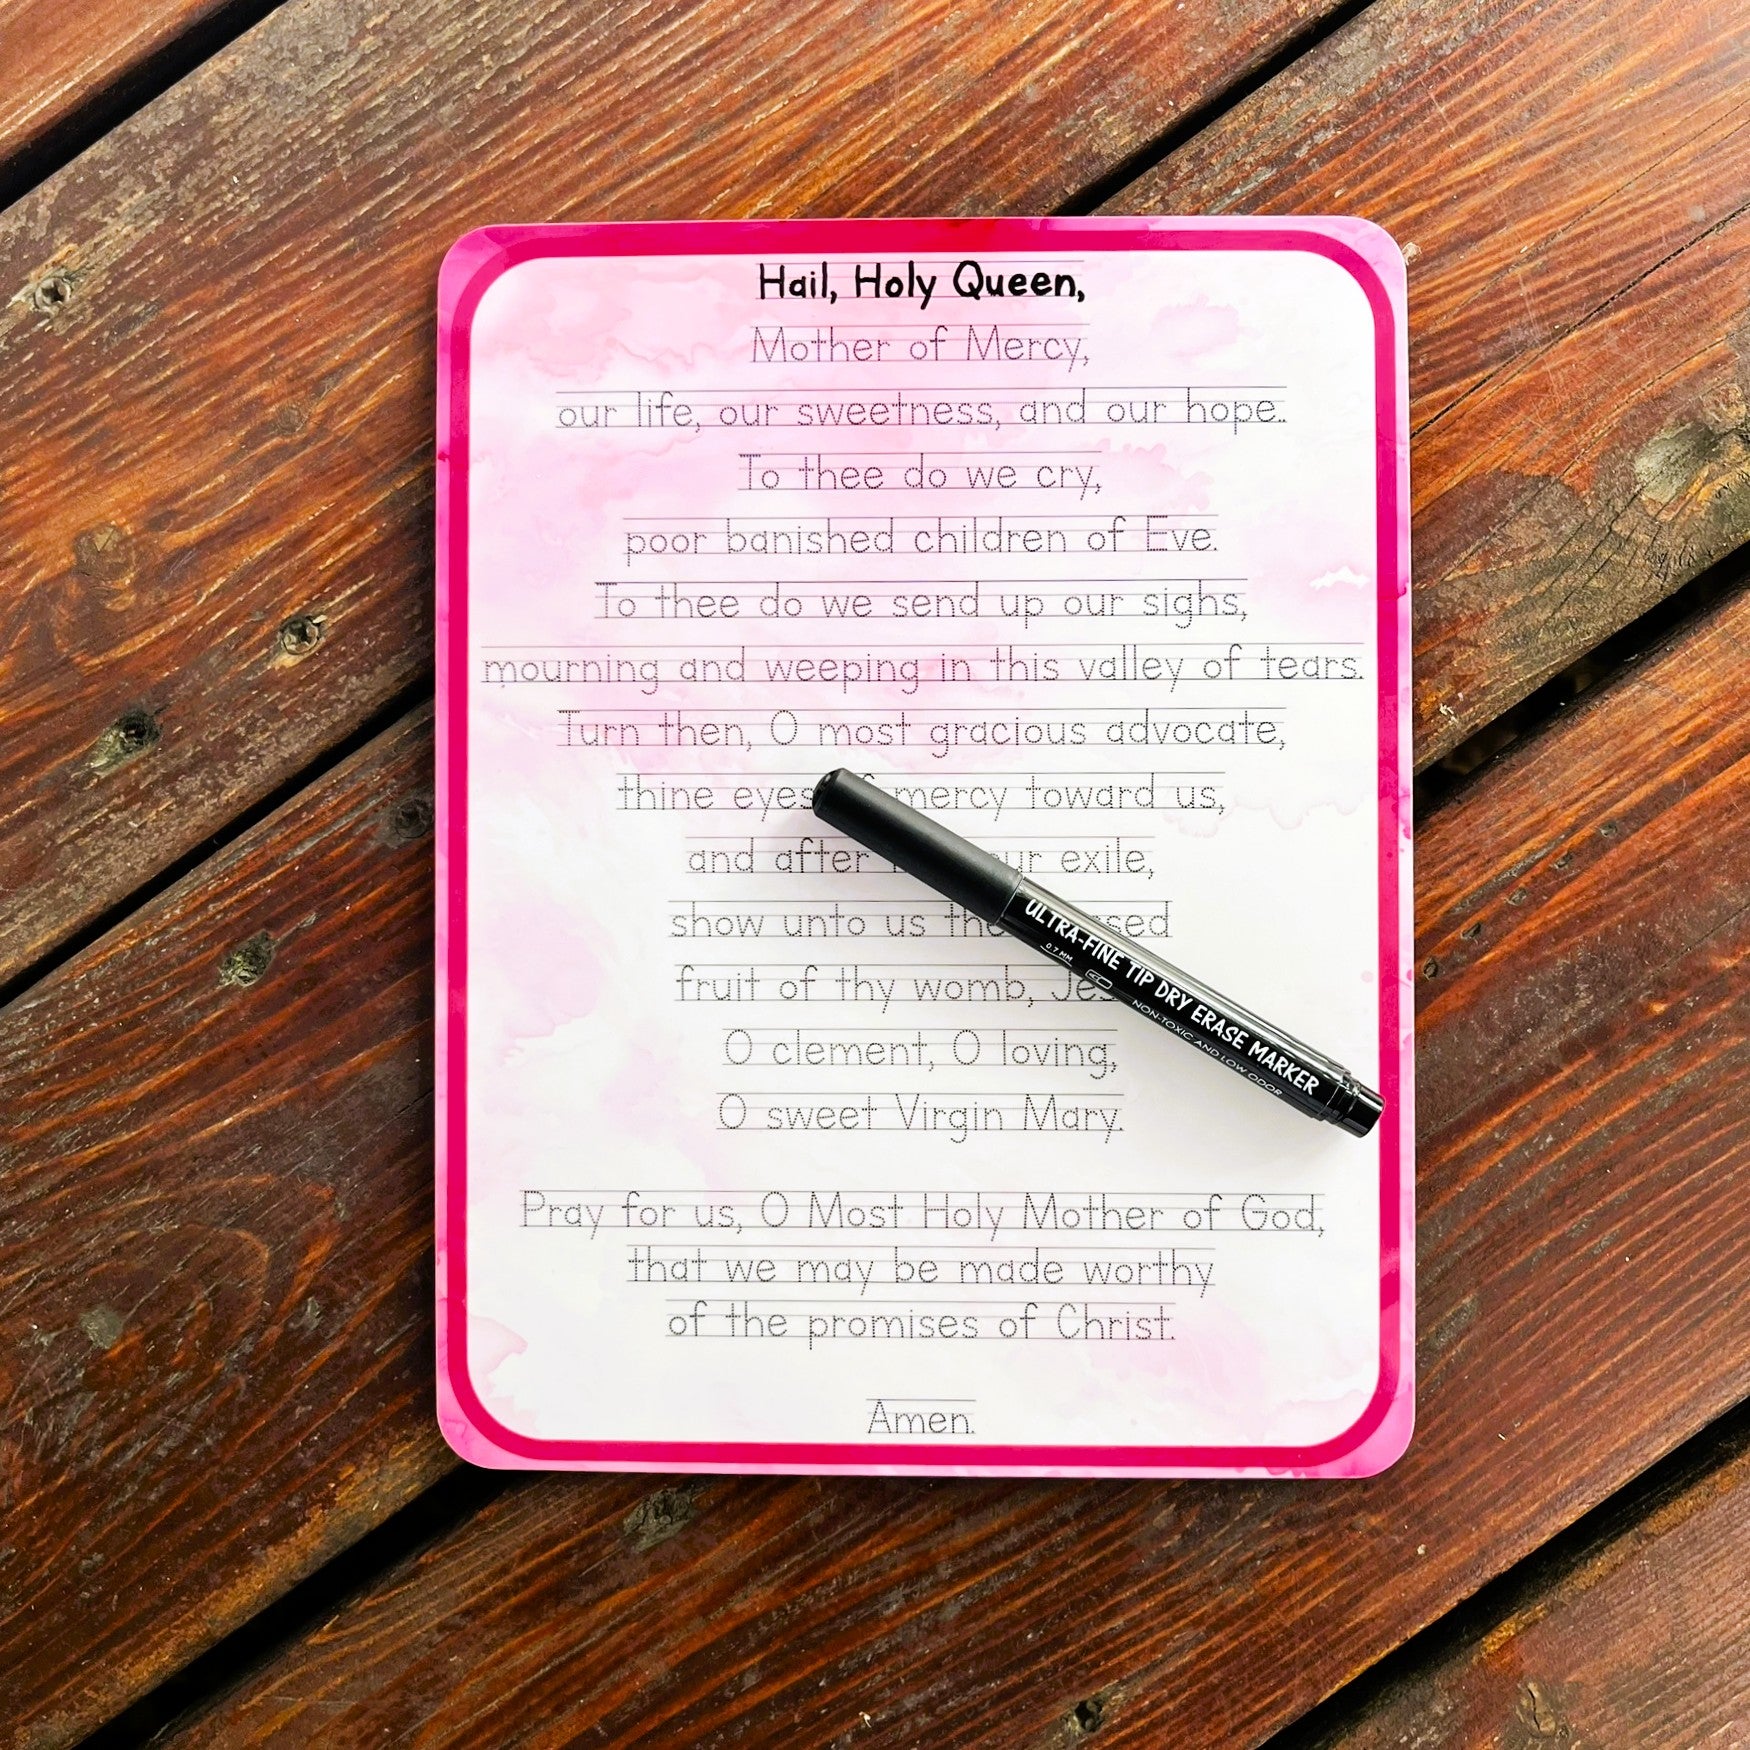 Hail, Holy Queen,
Mother of Mercy,
our life, our sweetness, and our hope..
To thee do we cry,
poor banished children of Eve.
To thee do we send up our sighs,
mourning and weeping in this valley of tears.
Turn then, O most gracious advocate,
thine eyes of mercy toward us,
and after exile,
show unto us
fruit of thy womb,
O clement, O loving,
O sweet Virgin Mary.
Pray for us, O Most Holy Mother of God,
that we may be made worthy
of the promises of Christ.
Amen.
ULTRA-FINE TIP DRY ERASE MARKER
0.7 MM
NON-TOXIC AND LOW ODOR